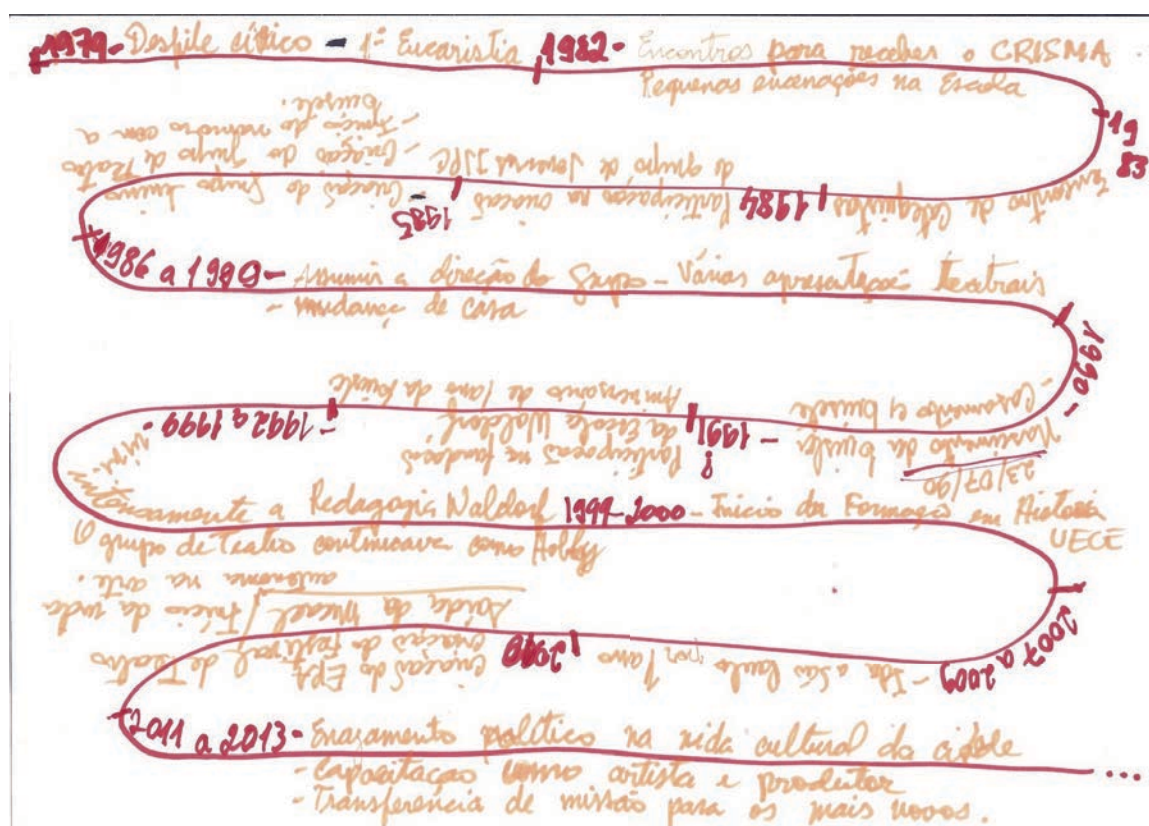 1979 - Desfile cívico - 1ª Eucaristia 1982 - Encontros para receber o CRISMA.
Pequenas encenações na Escola
1983
Encontro de Catequistas
1984
Participação na criação
do grupo de Jovens
1985
- Criação do Grupo
- Criação do grupo de Teatro
- Início do namoro com a
1986 a 1989 - Assumir a direção do grupo - Várias apresentações teatrais
- mudança de casa
1990 -
- Casamento c/
Nascimento da
23/07/90
- 1991
Aniversário de 1 ano da
Participação na fundação
da Escola Waldorf
- 1992 a 1999 -
vivi
intensamente a Pedagogia Waldorf 1999-2000 - Início da Formação em História
UECE
O grupo de Teatro continuava como Hobby
2007 a 2009
- Ida a São Paulo por 1 ano
2010
Criação do EPA
Criação do Festival de Teatro
Saída da Micael / Início da vida
autônoma na arte.
2011 a 2013 - Engajamento político na vida cultural da cidade
- Capacitação como artista e produtor
- Transferência de missão para os mais novos.
...